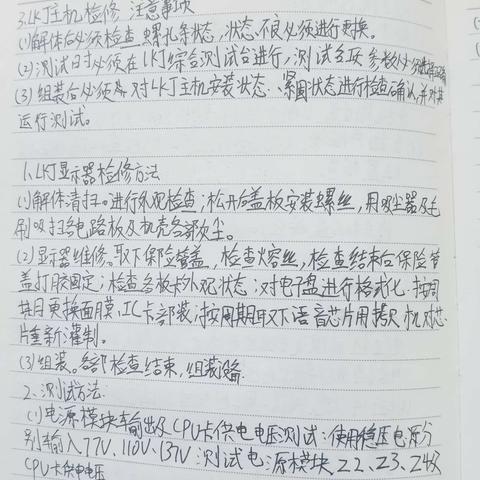 3.LKJ主机检修 注意事项
(1)解体后必须检查 螺孔等状态,状态不良必须进行更换。
(2)测试日子必须在LKJ综合测试台进行,测试各项参数必须
(3)组装后必须 对LKJ主机安装状态、紧固状态进行检查确认,并对其
运行测试。
1、LKJ显示器检修方法
(1)解体清扫。进行外观检查;松开后盖板安装螺丝,用吸尘器及毛
刷吸扫各电路板及机壳各部灰尘。
(2)显示器维修。取下保险管盖,检查熔丝,检查结束后保险管
盖打胶固定;检查各板卡外观状态;对电子盘进行格式化 按周
其月更换面膜、IC卡部装;按周期取下语音芯片用拷贝机对芯
片重新灌制。
(3)组装。各部检查结束,组装设备
2、测试方法
(1)电源模块车输出及CPU卡供电电压测试:使用稳压电源分
别输入77V、110V、137V 测试电源模块 Z2、Z3、Z4及
CPU卡供电电压